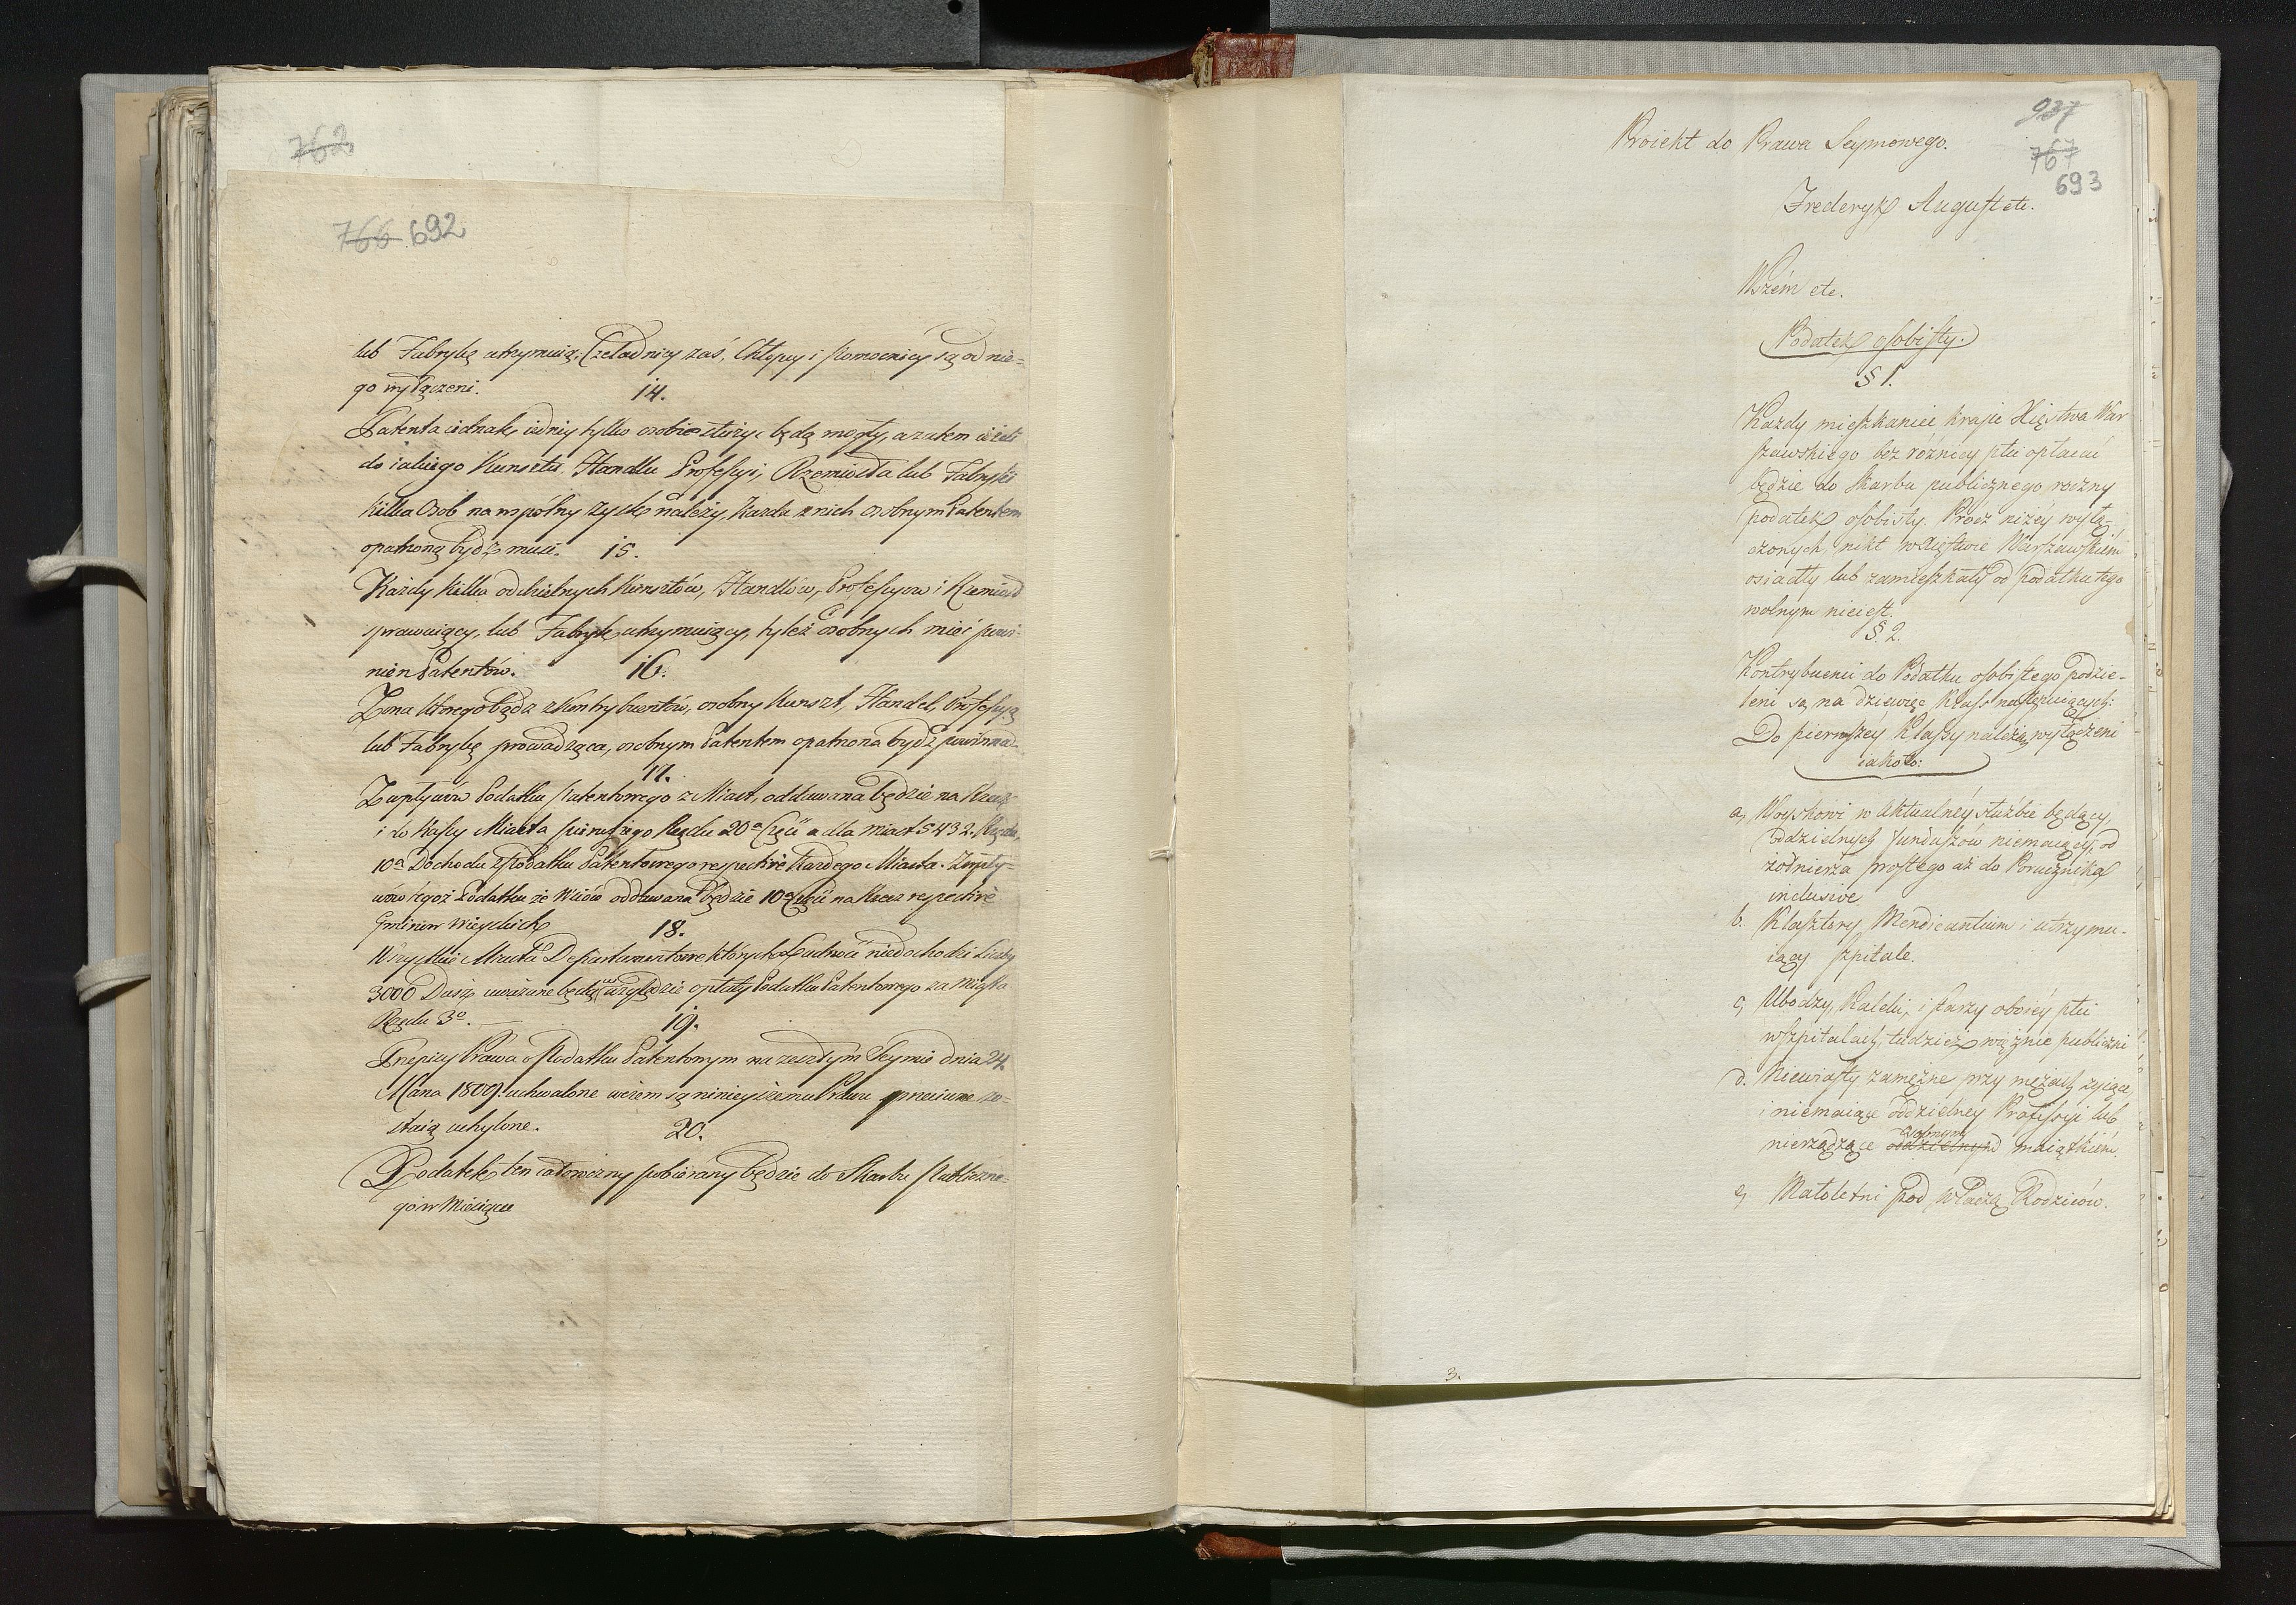 762
766 692
lub Fabrykę utrzymuią; Czeladnicy zaś, Chłopcy i Pomocnicy są od nie=
go wyłączeni.
14.
Patenta iednak iedniy tylko osobie służyć będą mogły, a zatem ieżeli
do iakiego Kunsztu, Handlu Professyi, Rzemiosła lub Fabryki
kilka Osob na wspólny Zysk należy, każda z nich osobnym Patentem
opatrzoną bydź musi.
15.
Każdy kilka oddzielnych Kunsztów, Handlów, Professyow i Rzemiosł
sprawuiący, lub Fabryk utrzymuiący, tyleż osobnych mieć powi-
nien Patentów.
16.
Zona którego bądź z Kontrybuentów, osobny Kunszt, Handel, Professyą
lub Fabrykę prowadząca, osobnym Patentem opatrzona bydź powinna.
17.
Z wpływów Podatku Patentowego z Miast, oddawana będzie na Rzecz
i do Kassy Miasta pierwszego Rzędu 20ª Częśc a dla miast 5 4 3 2. Rzędu,
10ª Dochodu z Podatku Patentowego respective każdego Miasta. Z wpły-
wów tegoż Podatku ze Wsiów oddawana będzie 10ª Część na Rzecz respective
Gminow wieyskich
18.
Wszystkie Miasta Departamentowe których Ludność niedochodzi Liczby
3000 Dusz, uważane będą we względzie opłaty Podatku Patentowego za Miasta
Rzędu 3º.
19.
Przepisy Prawa o Podatku Patentowym na zeszłym Seymie dnia 24.
Marca 1809. uchwalone wczem są ninieyszemu Prawu przeciwne zo=
staią uchylone.
20.
Podatek ten całoroczny pobierany będzie do Skarbu Publiczne=
go w Miesiącu
937
767
693
Proiekt do Prawa Seymowego.
Frederyk August etc.
Wszem etc.
Podatek osobisty.
§ 1.
Każdy mieszkaniec kraju Xięstwa War
szawskiego bez różnicy płci opłacać
będzie do Skarbu publicznego roczny
podatek osobisty. Procz niżey wyłą-
czonych, nikt w Xięstwie Warszawskiém
osiadły lub zamieszkały od podatku tego
wolnym nieiest.
§. 2.
Kontrybuenci do Podatku osobistego podzie-
leni są na dziewięc Klass następuiących:
Do pierwszéy Klassy należą wyłączeni
iako to:
a, Woyskowi w aktualnéy służbie będący,
oddzielnych funduszów niemaiący, od
żołnierza prostego aż do Porucznika
inclusive
b. Klasztory Mendicantium i utrzymu-
iący szpitale.
c, Ubodzy, Kaleki, i starzy oboiéy płci
w szpitalach, tudzież więźnie publiczni
d. Niewiasty zamężne przy mężach żyiące,
i niemaiące oddzielney Professyi lub
nierządzące oddzielnym wolnym maiątkiem.
e, Małoletni pod władzą Rodziców.
3.